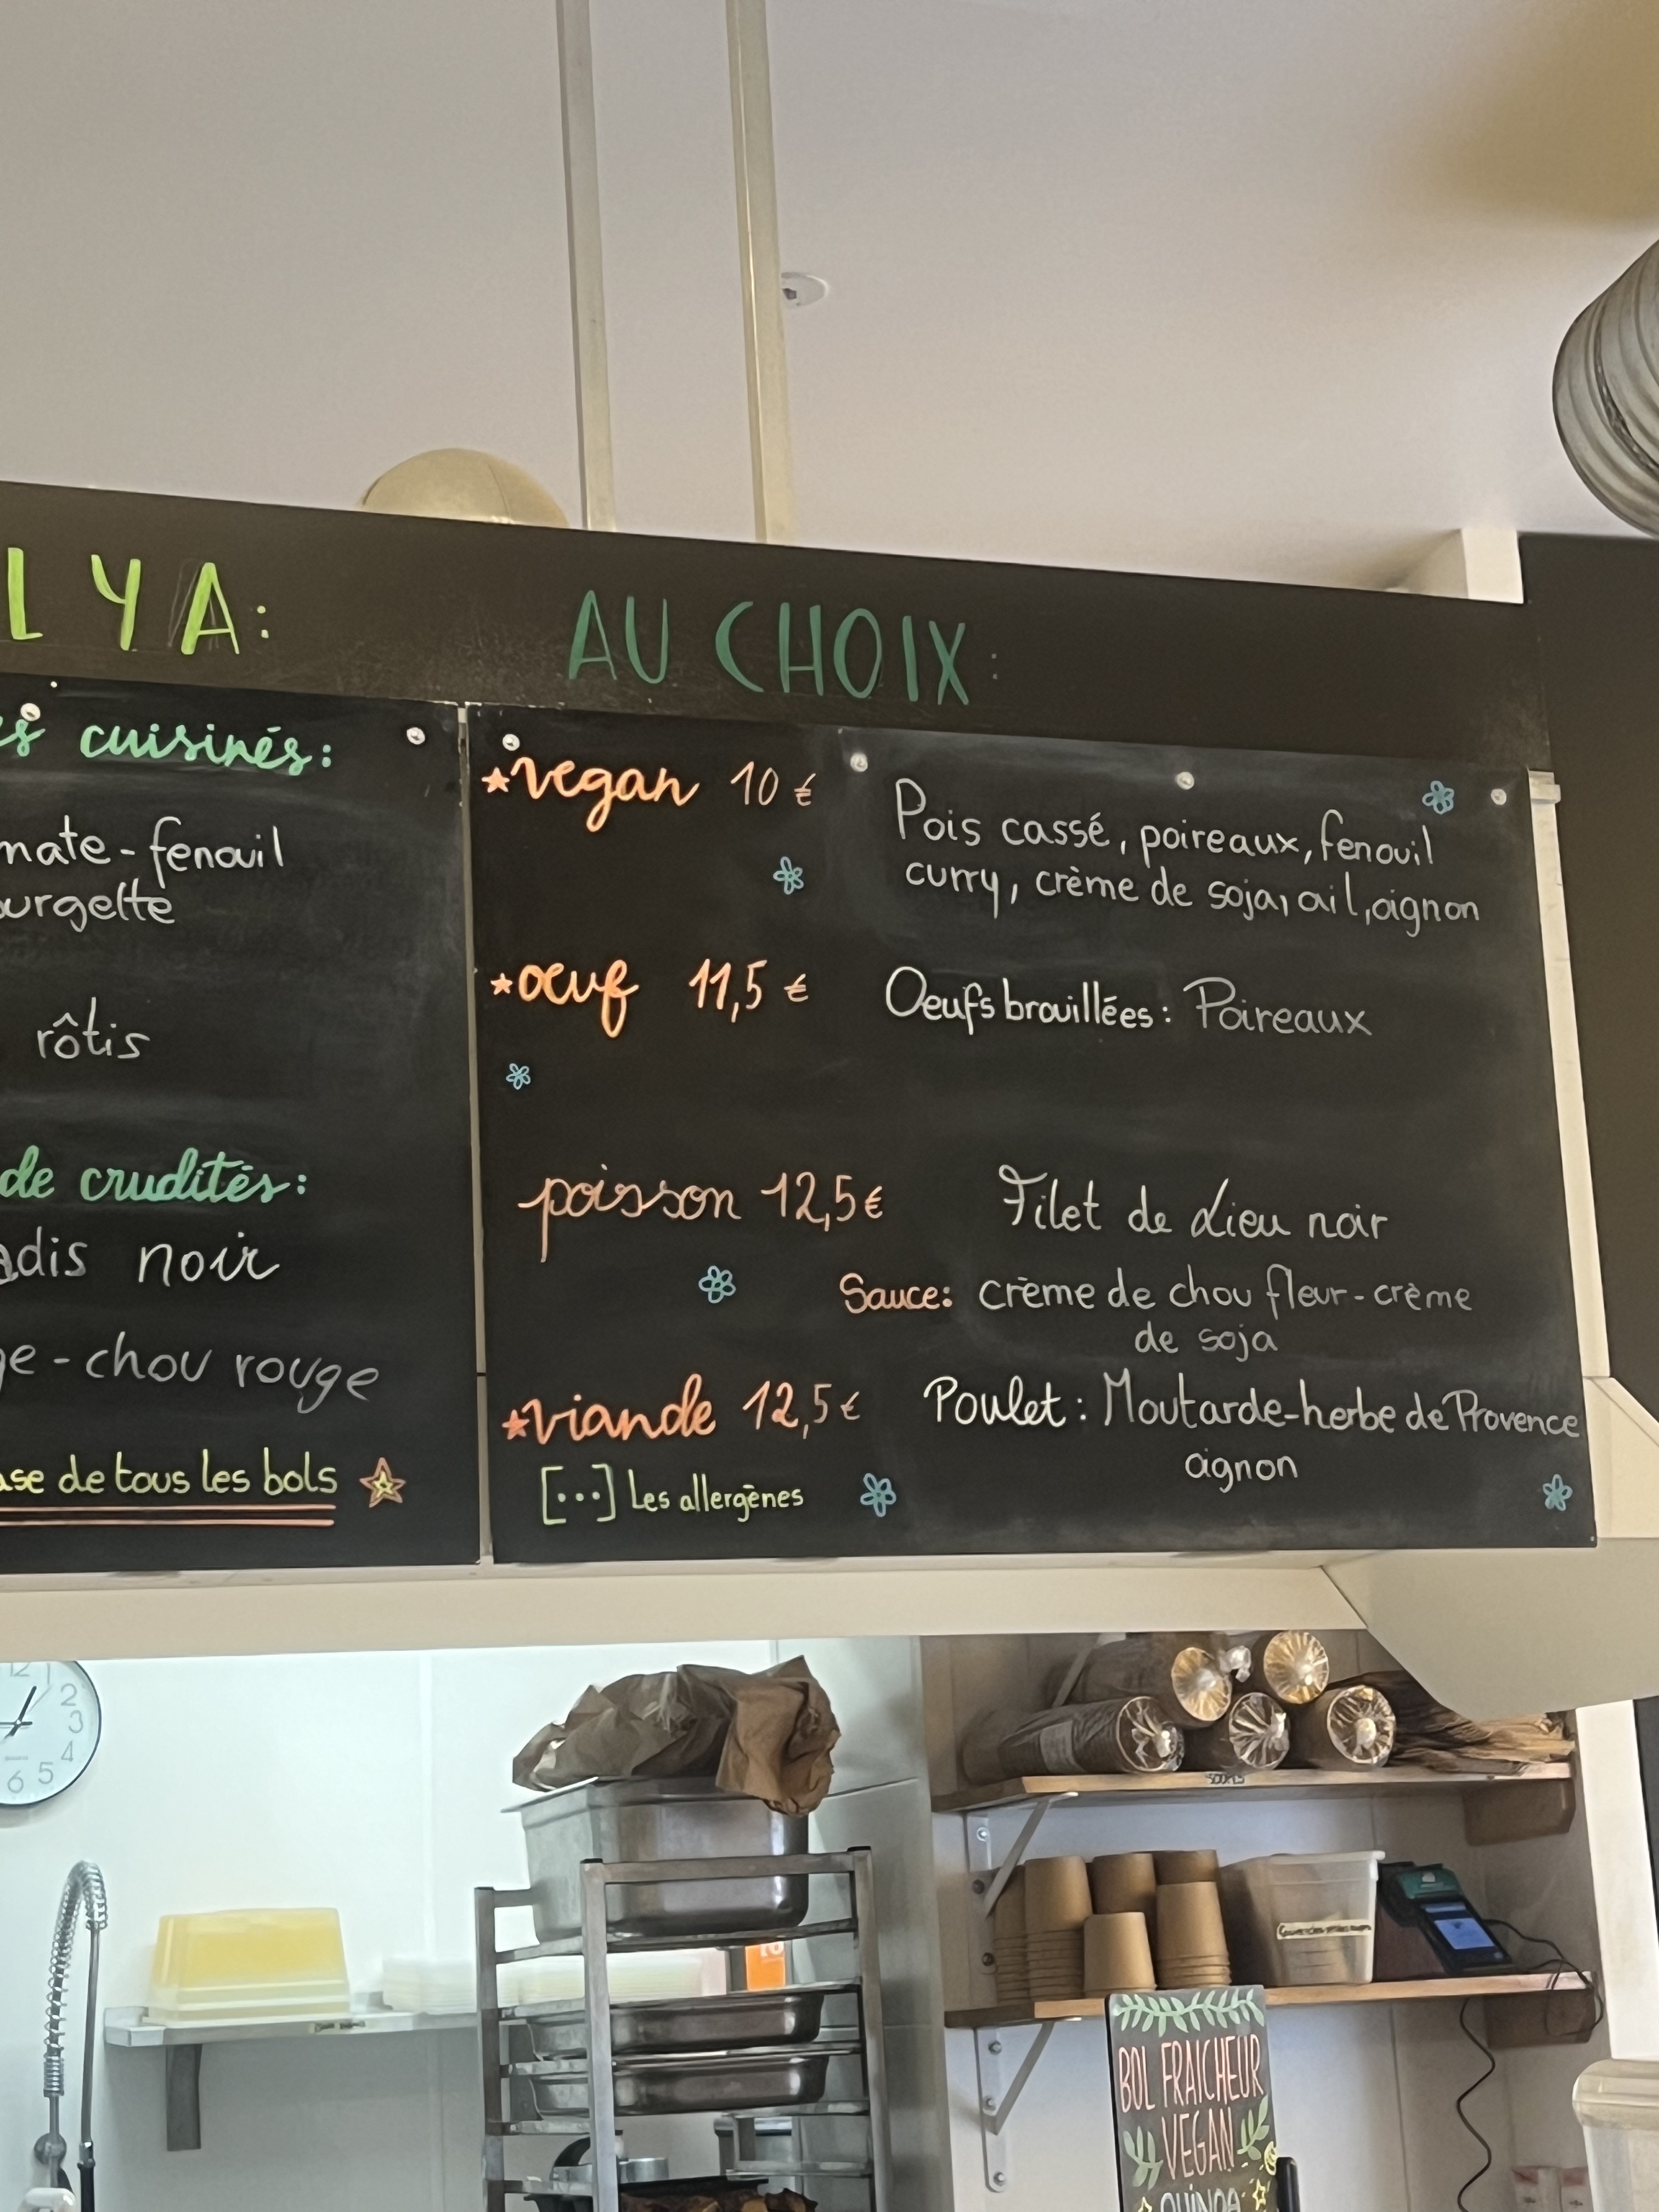 L Y A:
AU CHOIX:
cuisinés:
mate-fenouil
urgette
rôtis
de crudités:
adis noir
ge-chou rouge
ase de tous les bols
vegan 10 €
Pois cassé, poireaux, fenouil
curry, crème de soja, ail, oignon
oeuf 11,5 €
Oeufs brouillées: Poireaux
poisson 12,5€
Filet de Lieu noir
Sauce: crème de chou fleur-crème
de soja
viande 12,5€
Poulet: Moutarde-herbe de Provence
oignon
[...] Les allergènes
12
1
2
3
4
5
6
BOL FRAICHEUR
VEGAN
QUINOA